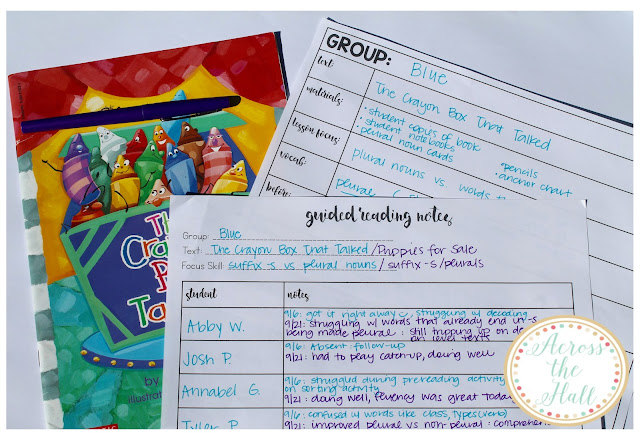 The
Crayon
B
Ta
by
illustra
GROUP: Blue
text: The Crayon Box That Talked
materials: • student copies of book
• student notebooks
• plural noun cards
• pencils
• anchor chart
lesson focus: plural nouns vs words t
vocab: plural
before:
guided reading notes
Group: Blue
Text: The Crayon Box That Talked/Puppies for Sale
Focus Skill: suffix -s vs plural nouns/suffix -s/plurals
student notes
Abby W. 9/6: got it right away, struggling w/ decoding
9/21: struggling w/ words that already end in -s
being made plural: still tripping up on de
on level texts
Josh P. 9/6: Absent-follow-up
9/21: had to play catch-up, doing well
Annabel G. 9/6: struggled during prereading activity
on sorting activity
9/21: doing well, fluency was great today
Tyler P. 9/6: confused w/ words like class, types(verb)
9/21: improved plural vs non-plural: comprehen
Across
the
Hall